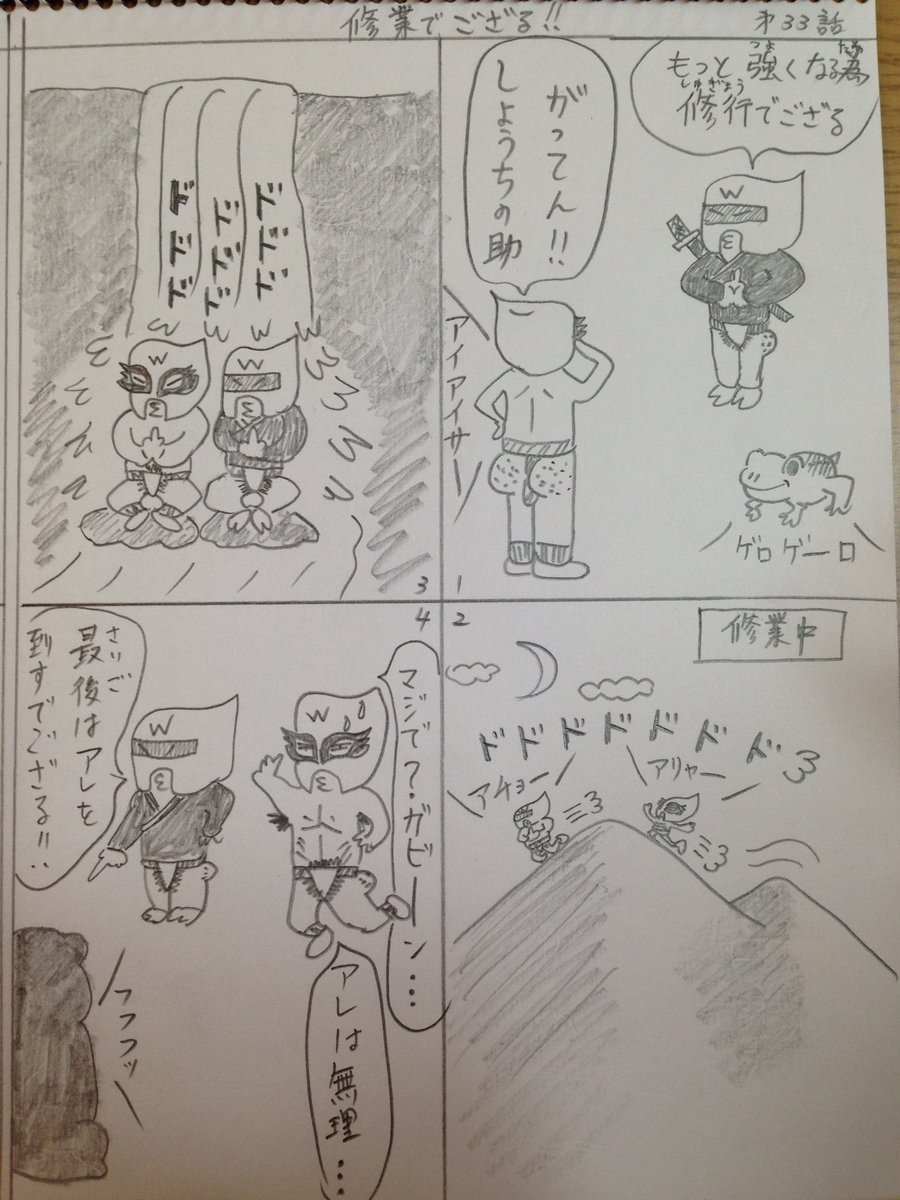 修業でござる!!
オ33話
もっと強くなる為
つよ
ため
修行でござる
しゅぎょう
がってん!!
しょうちの助
アイアイサー
ゲロゲーロ
1
修業中
2
ドドドドドドド
アチョー
アリャー
ドドド
ドドド
ドドド
3
4
マジで?ガビーン...
アレは無理...
最後はアレを
さいご
到すでござる!!
フフフッ